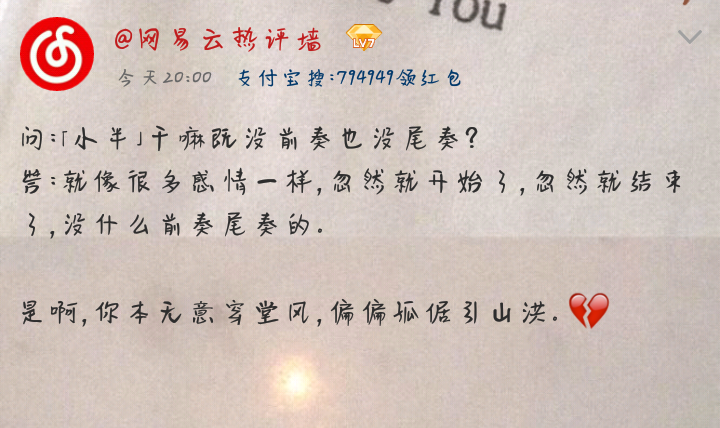 You
@网易云热评墙 LV7
今天20:00 支付宝搜:794949领红包
问:「小半」干嘛既没前奏也没尾奏?
答:就像很多感情一样,忽然就开始了,忽然就结束
了,没什么前奏尾奏的.
是啊,你本无意穿堂风,偏偏孤倨引山洪.